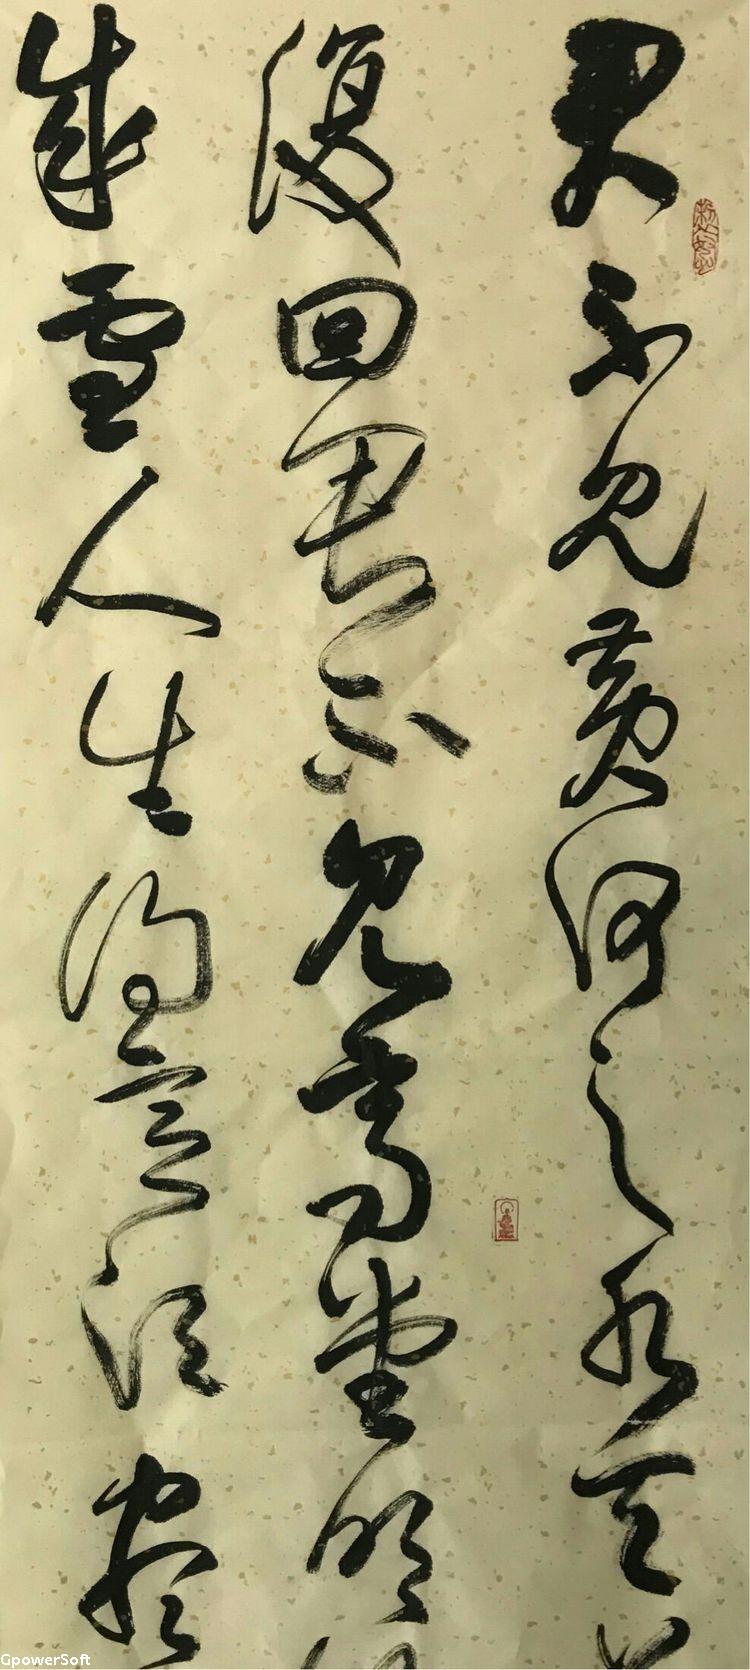 君不見黃河之水天
復回君不見高堂明
成雪人生得意須盡
GpowerSoft